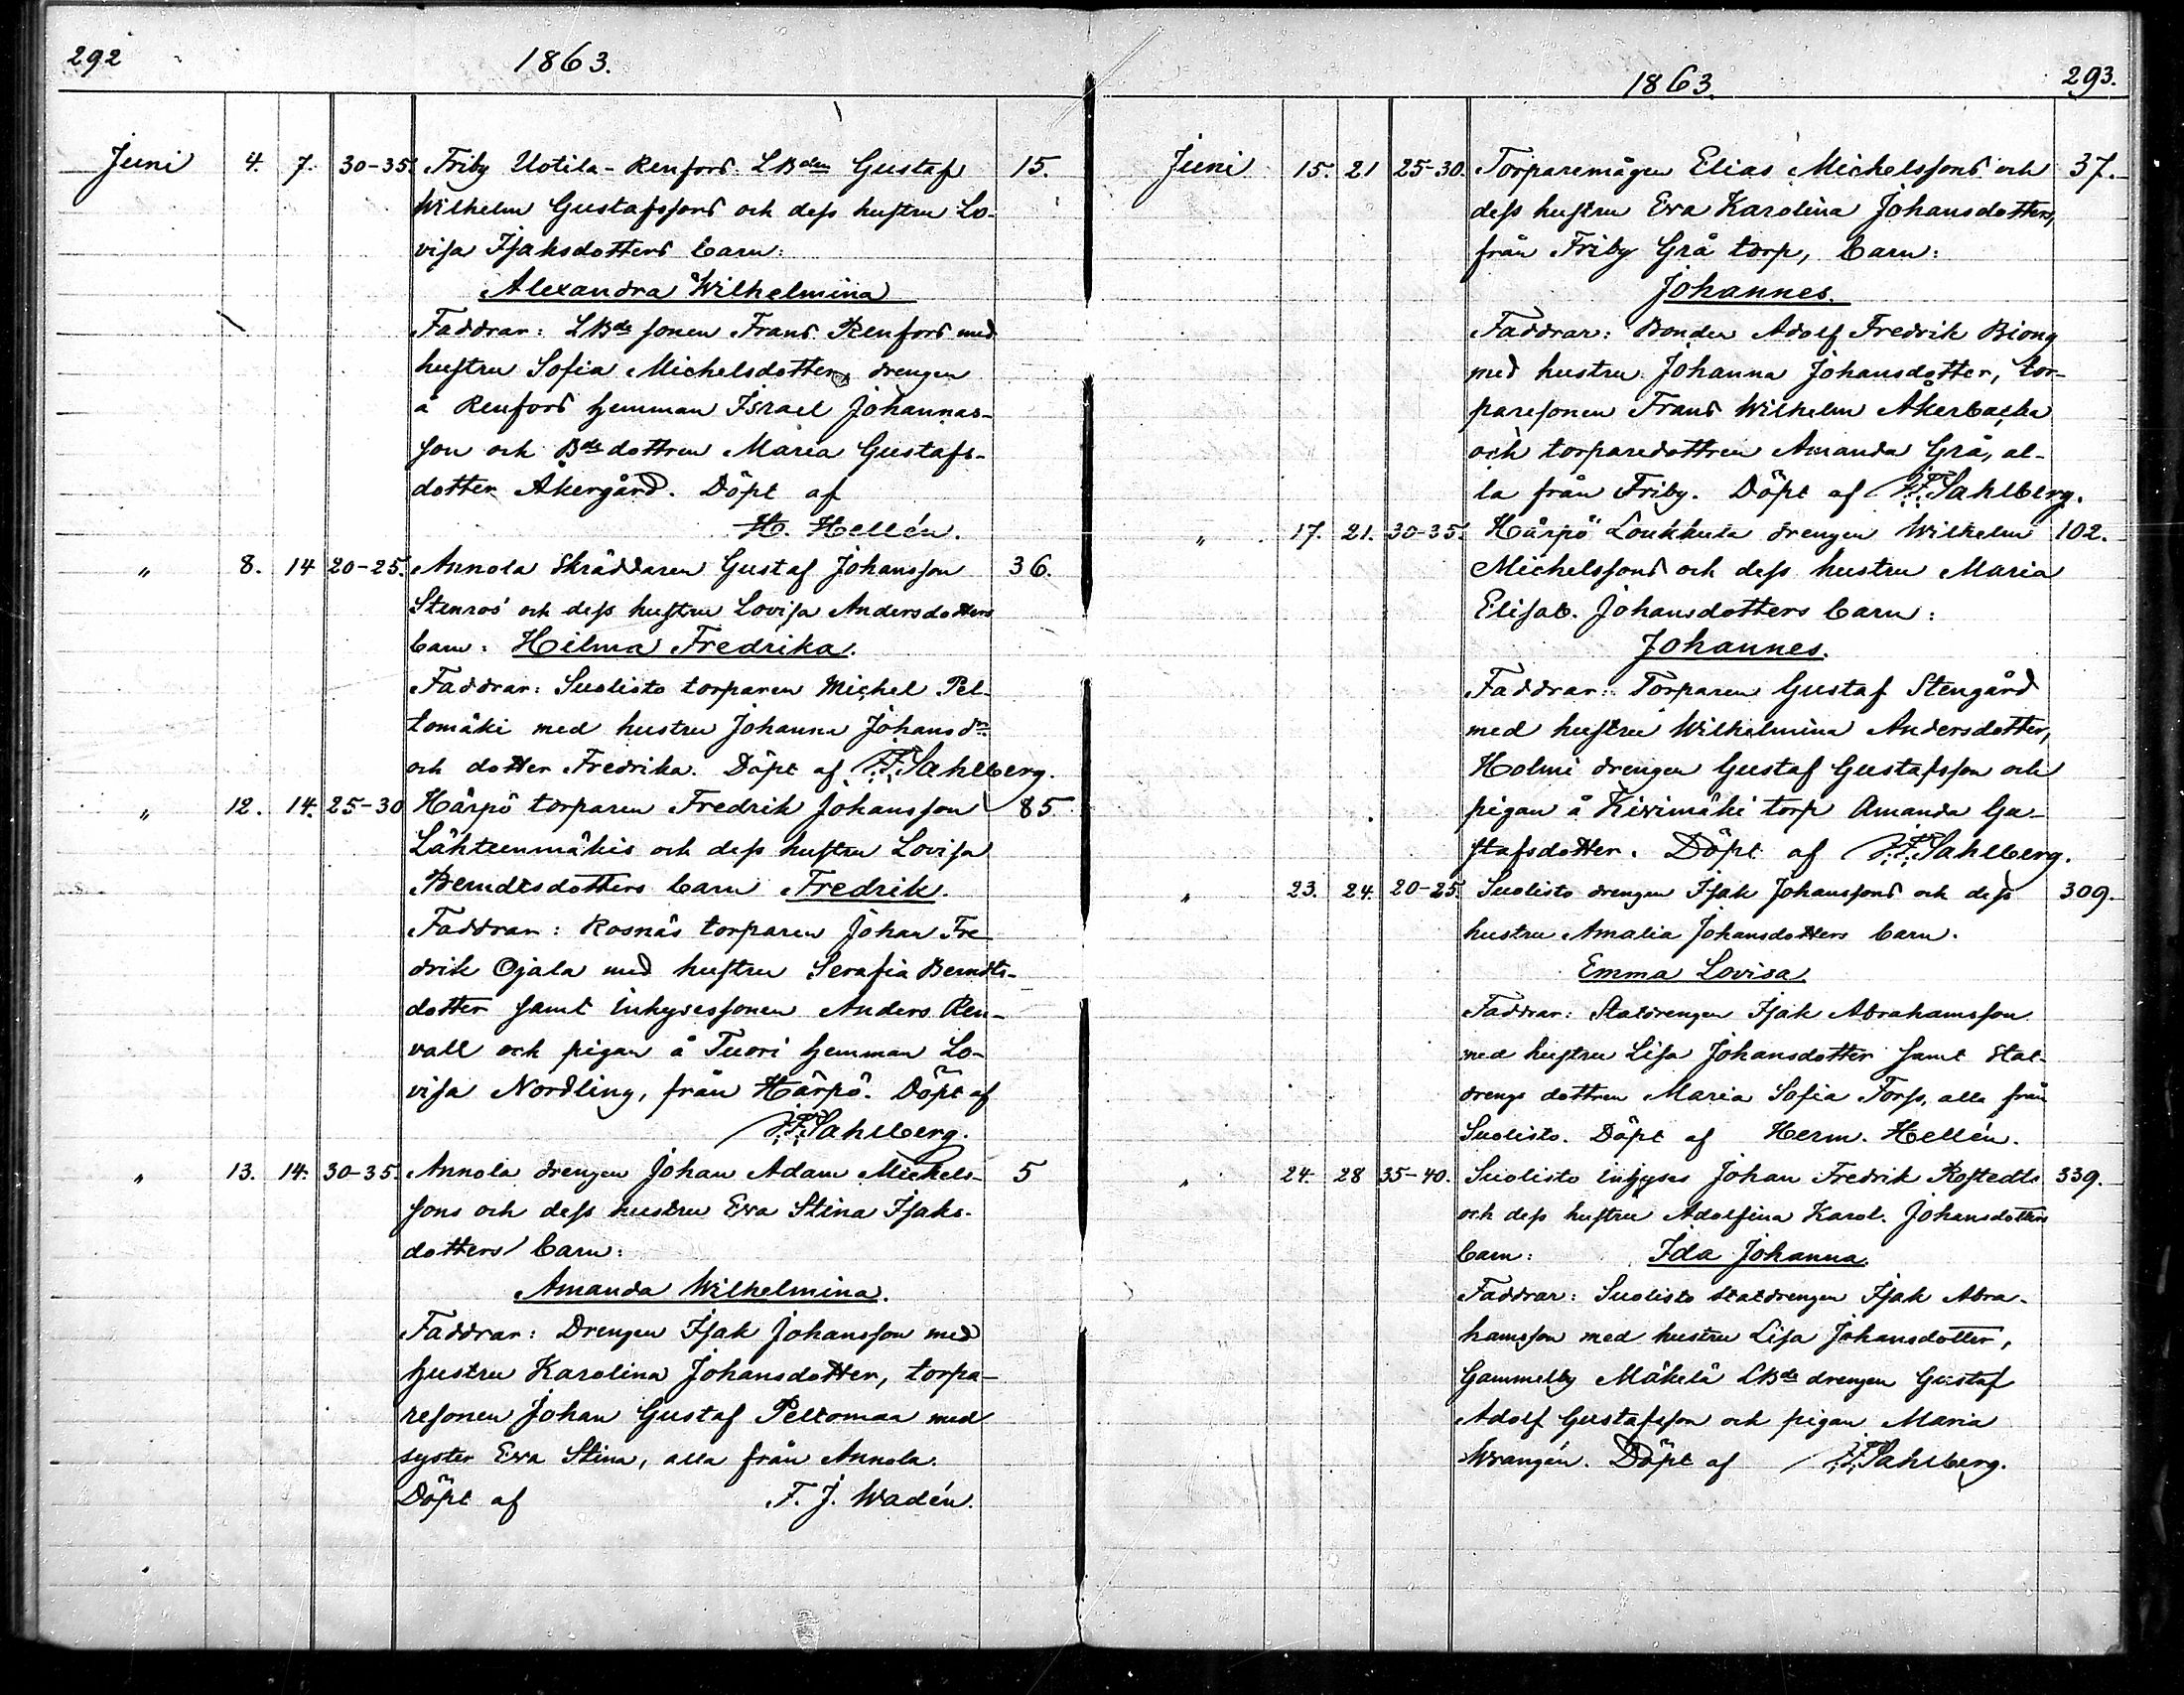 292
1863.
Juni 4. 7. 30-35. Friby Uotila-Renfors LBden Gustaf 15.
Wilhelm Gustafssons och dess hustru Lo-
visa Isaksdotters barn:
Alexandra Wilhelmina
Faddrar: LBde sonen Frans Renfors med
hustru Sofia Michelsdotter, drengen
å Renfors hemman Israel Johannas-
son och Bde dottren Maria Gustafs-
dotter Åkergård. Döpt af
H. Hellén.
" 8. 14 20-25. Annola Skräddaren Gustaf Johansson 36.
Stenros' och dess hustru Lovisa Andersdotters
barn: Hilma Fredrika.
Faddrar: Suolisto torparen Michel Pel-
tomäki med hustru Johanna Johansdr
och dotter Fredrika. Döpt af F. F. Sahlberg.
" 12. 14. 25-30 Härpö torparen Fredrik Johansson 85.
Lähteenmäkis och dess hustru Lovisa
Berndtsdotters barn Fredrik.
Faddrar: Rosnäs torparen Johan Fre-
drik Ojala med hustru Serafia Berndts-
dotter samt inhysessonen Anders Ren-
vall och pigan å Tuori hemman Lo-
visa Nordling, från Härpö. Döpt af
F. F. Sahlberg.
" 13. 14. 30-35. Annola drengen Johan Adam Michels- 5
sons och dess hustru Eva Stina Isaks-
dotters barn:
Amanda Wilhelmina.
Faddrar: Drengen Isak Johansson med
hustru Karolina Johansdotter, torpa-
resonen Johan Gustaf Peltomaa med
syster Eva Stina, alla från Annola.
Döpt af F. J. Wadén.
1863.
293.
Juni 15. 21 25-30. Torparemågen Elias Michelssons och 37.
dess hustru Eva Karolina Johansdotters,
från Friby Grå torp, barn:
Johannes.
Faddrar: Bonden Adolf Fredrik Biong
med hustru Johanna Johansdotter, tor-
paresonen Frans Wilhelm Åkerbacka
och torparedottren Amanda Grå, al-
la från Friby. Döpt af F. F. Sahlberg.
" 17. 21. 30-35. Härpö Loukkula drengen Wilhelm 102.
Michelssons och dess hustru Maria
Elisab. Johansdotters barn:
Johannes.
Faddrar: Torparen Gustaf Stengård
med hustru Wilhelmina Andersdotter,
Holmi drengen Gustaf Gustafsson och
pigan å Kivimäki torp Amanda Gu-
stafsdotter. Döpt af F. F. Sahlberg.
" 23. 24. 20-25. Suolisto drengen Isak Johanssons och dess 309.
hustru Amalia Johansdotters barn.
Emma Lovisa.
Faddrar: Statdrengen Isak Abrahamsson
med hustru Lisa Johansdotter samt stat-
drengs dottren Maria Sofia Forss, alla från
Suolisto. Döpt af Herm. Hellén.
" 24. 28 35-40. Suolisto inhyses Johan Fredrik Rostedts 339.
och dess hustru Adolfina Karol. Johansdotters
barn: Ida Johanna.
Faddrar: Suolisto statdrengen Isak Abra-
hamsson med hustru Lisa Johansdotter,
Gammelby Mäkelä LBds drengen Gustaf
Adolf Gustafsson och pigan Maria
Wrangén. Döpt af F. F. Sahlberg.